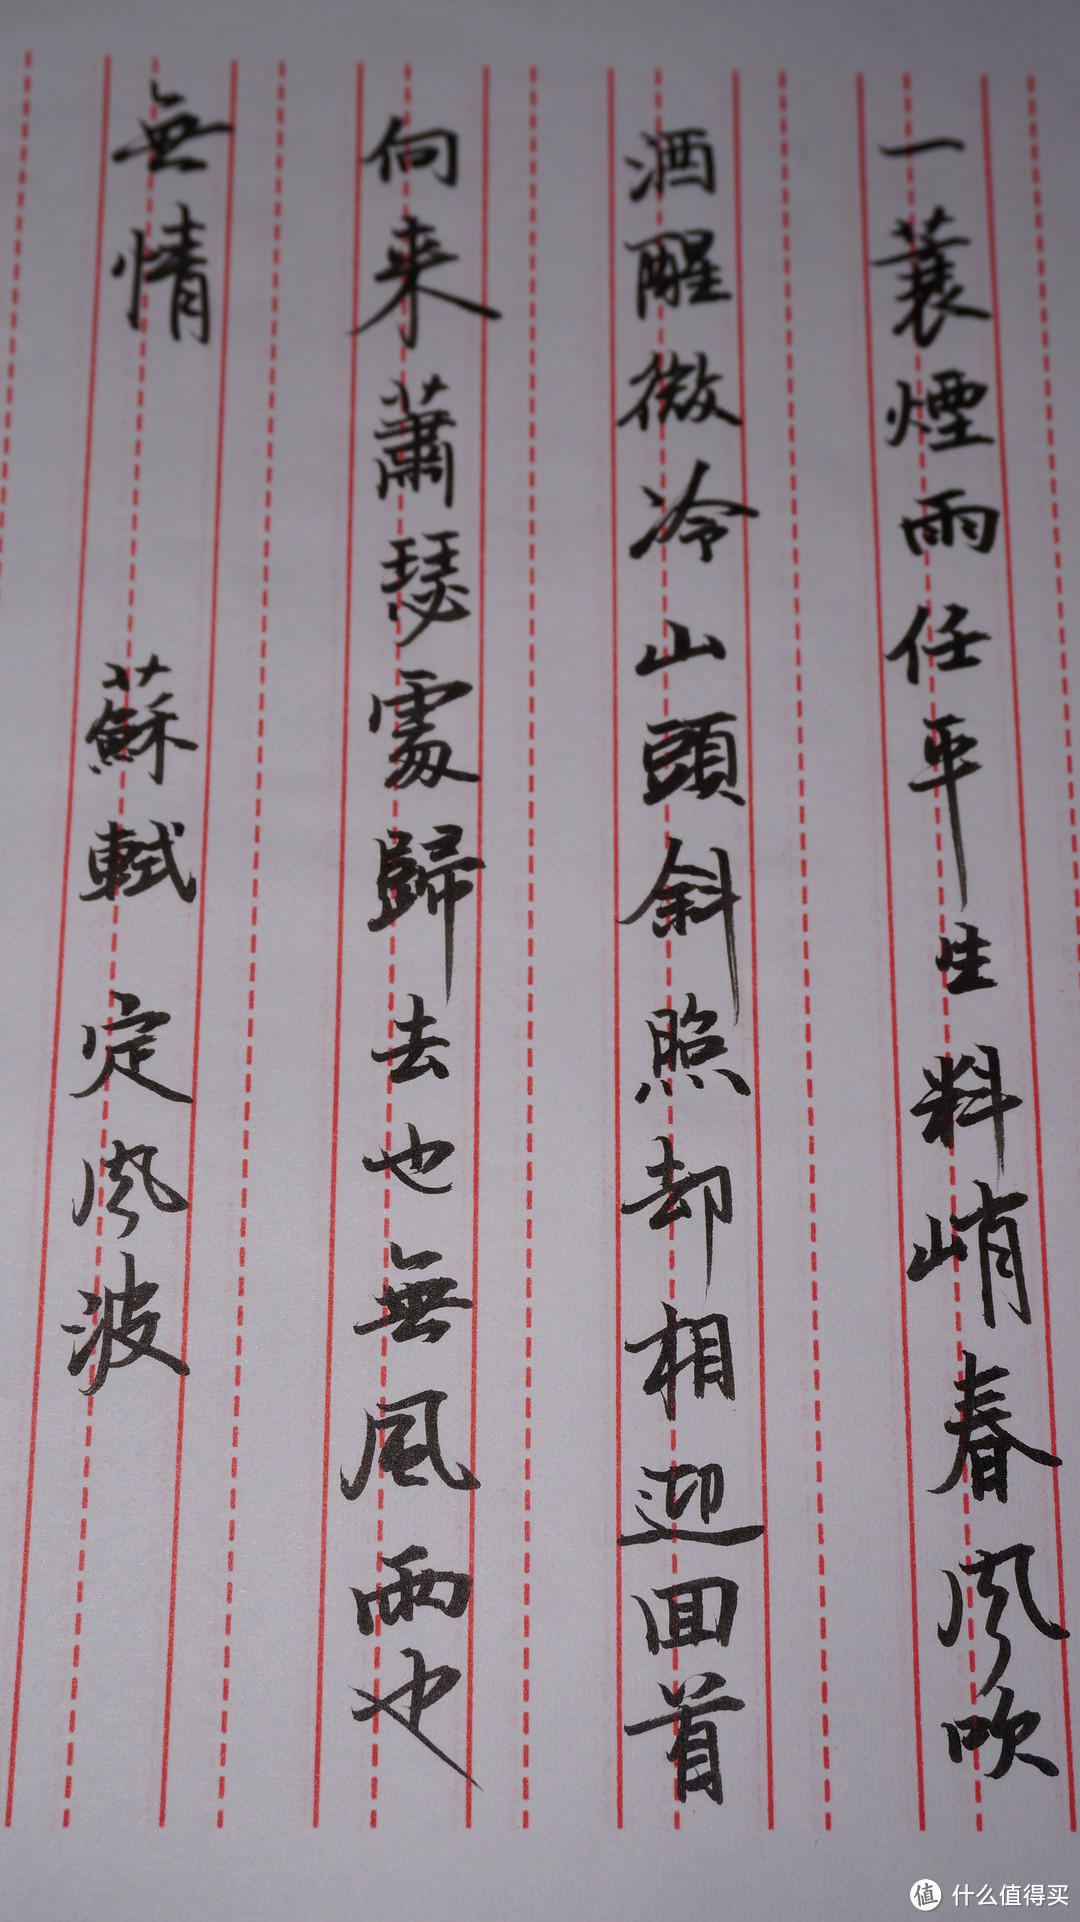 一蓑煙雨任平生料峭春風吹
酒醒微冷山頭斜照却相迎回首
向来蕭瑟處歸去也無風雨也
無情 蘇軾定風波
值 什么值得买